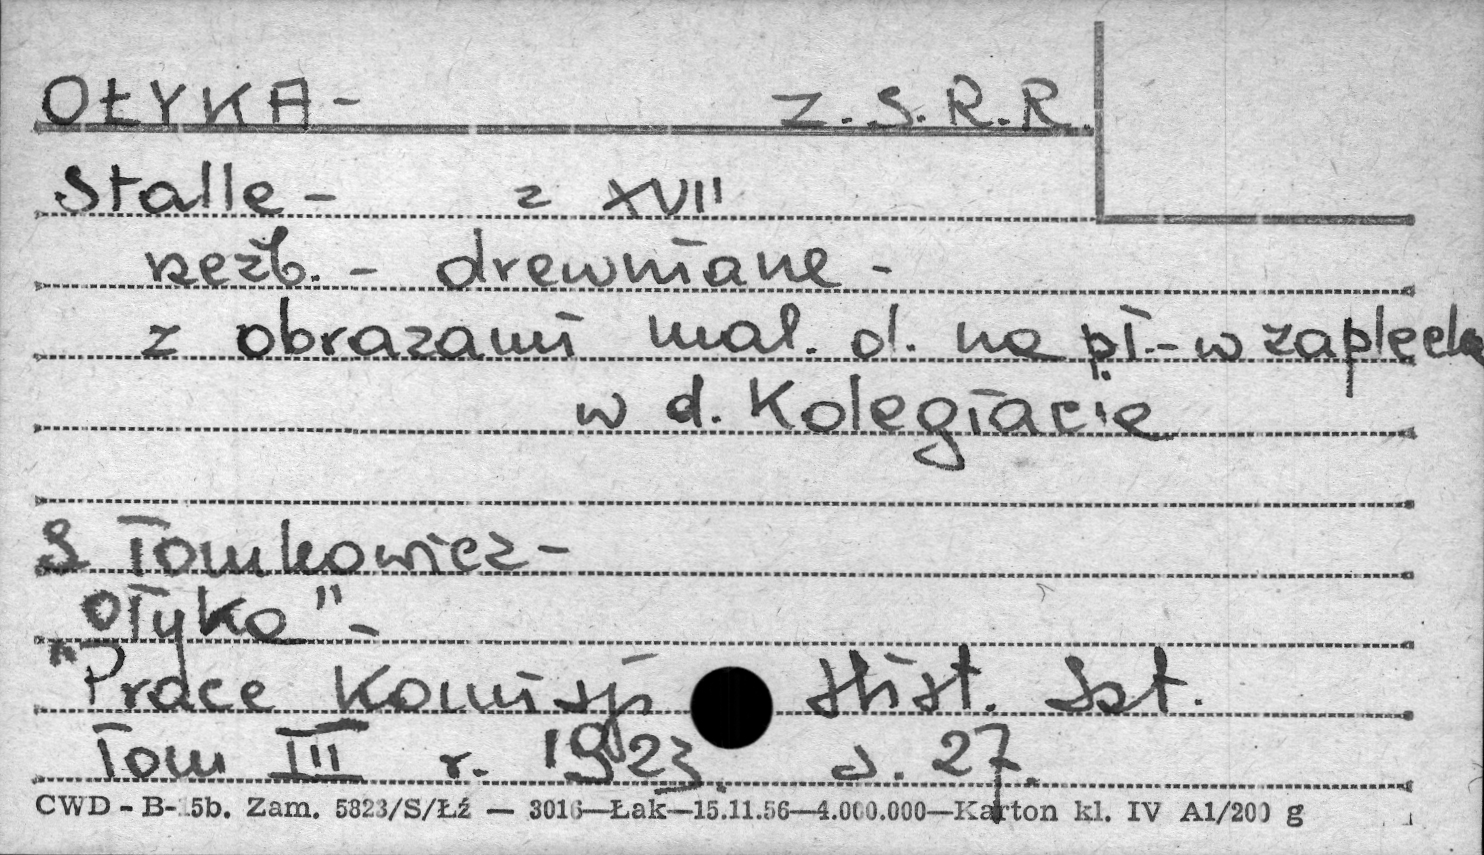 OŁYKA - Z.S.R.R.
Stalle - z XVII
rzeźb. - drewniane -
z obrazami mal. ol. na pł. - w zapleck
w d. Kolegiacie
S Tomkowicz -
"Ołyka" -
"Prace Komisji Hist. Szt.
Tom III r. 1923. s. 27.
CWD - B-15b. Zam. 5823/S/Łź — 3016—Łak—15.11.56—4.000.000—Karton kl. IV A1/200 g